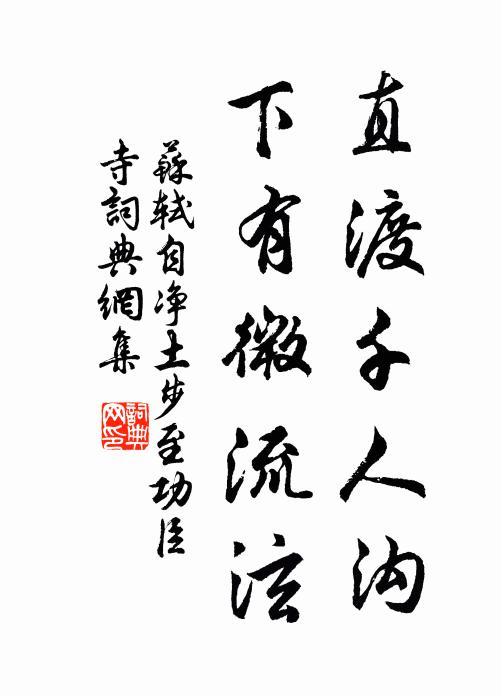 直渡千人沟
下有微流泫
蘇軾自净土步至功臣
寺詞典網集
詞典
网印